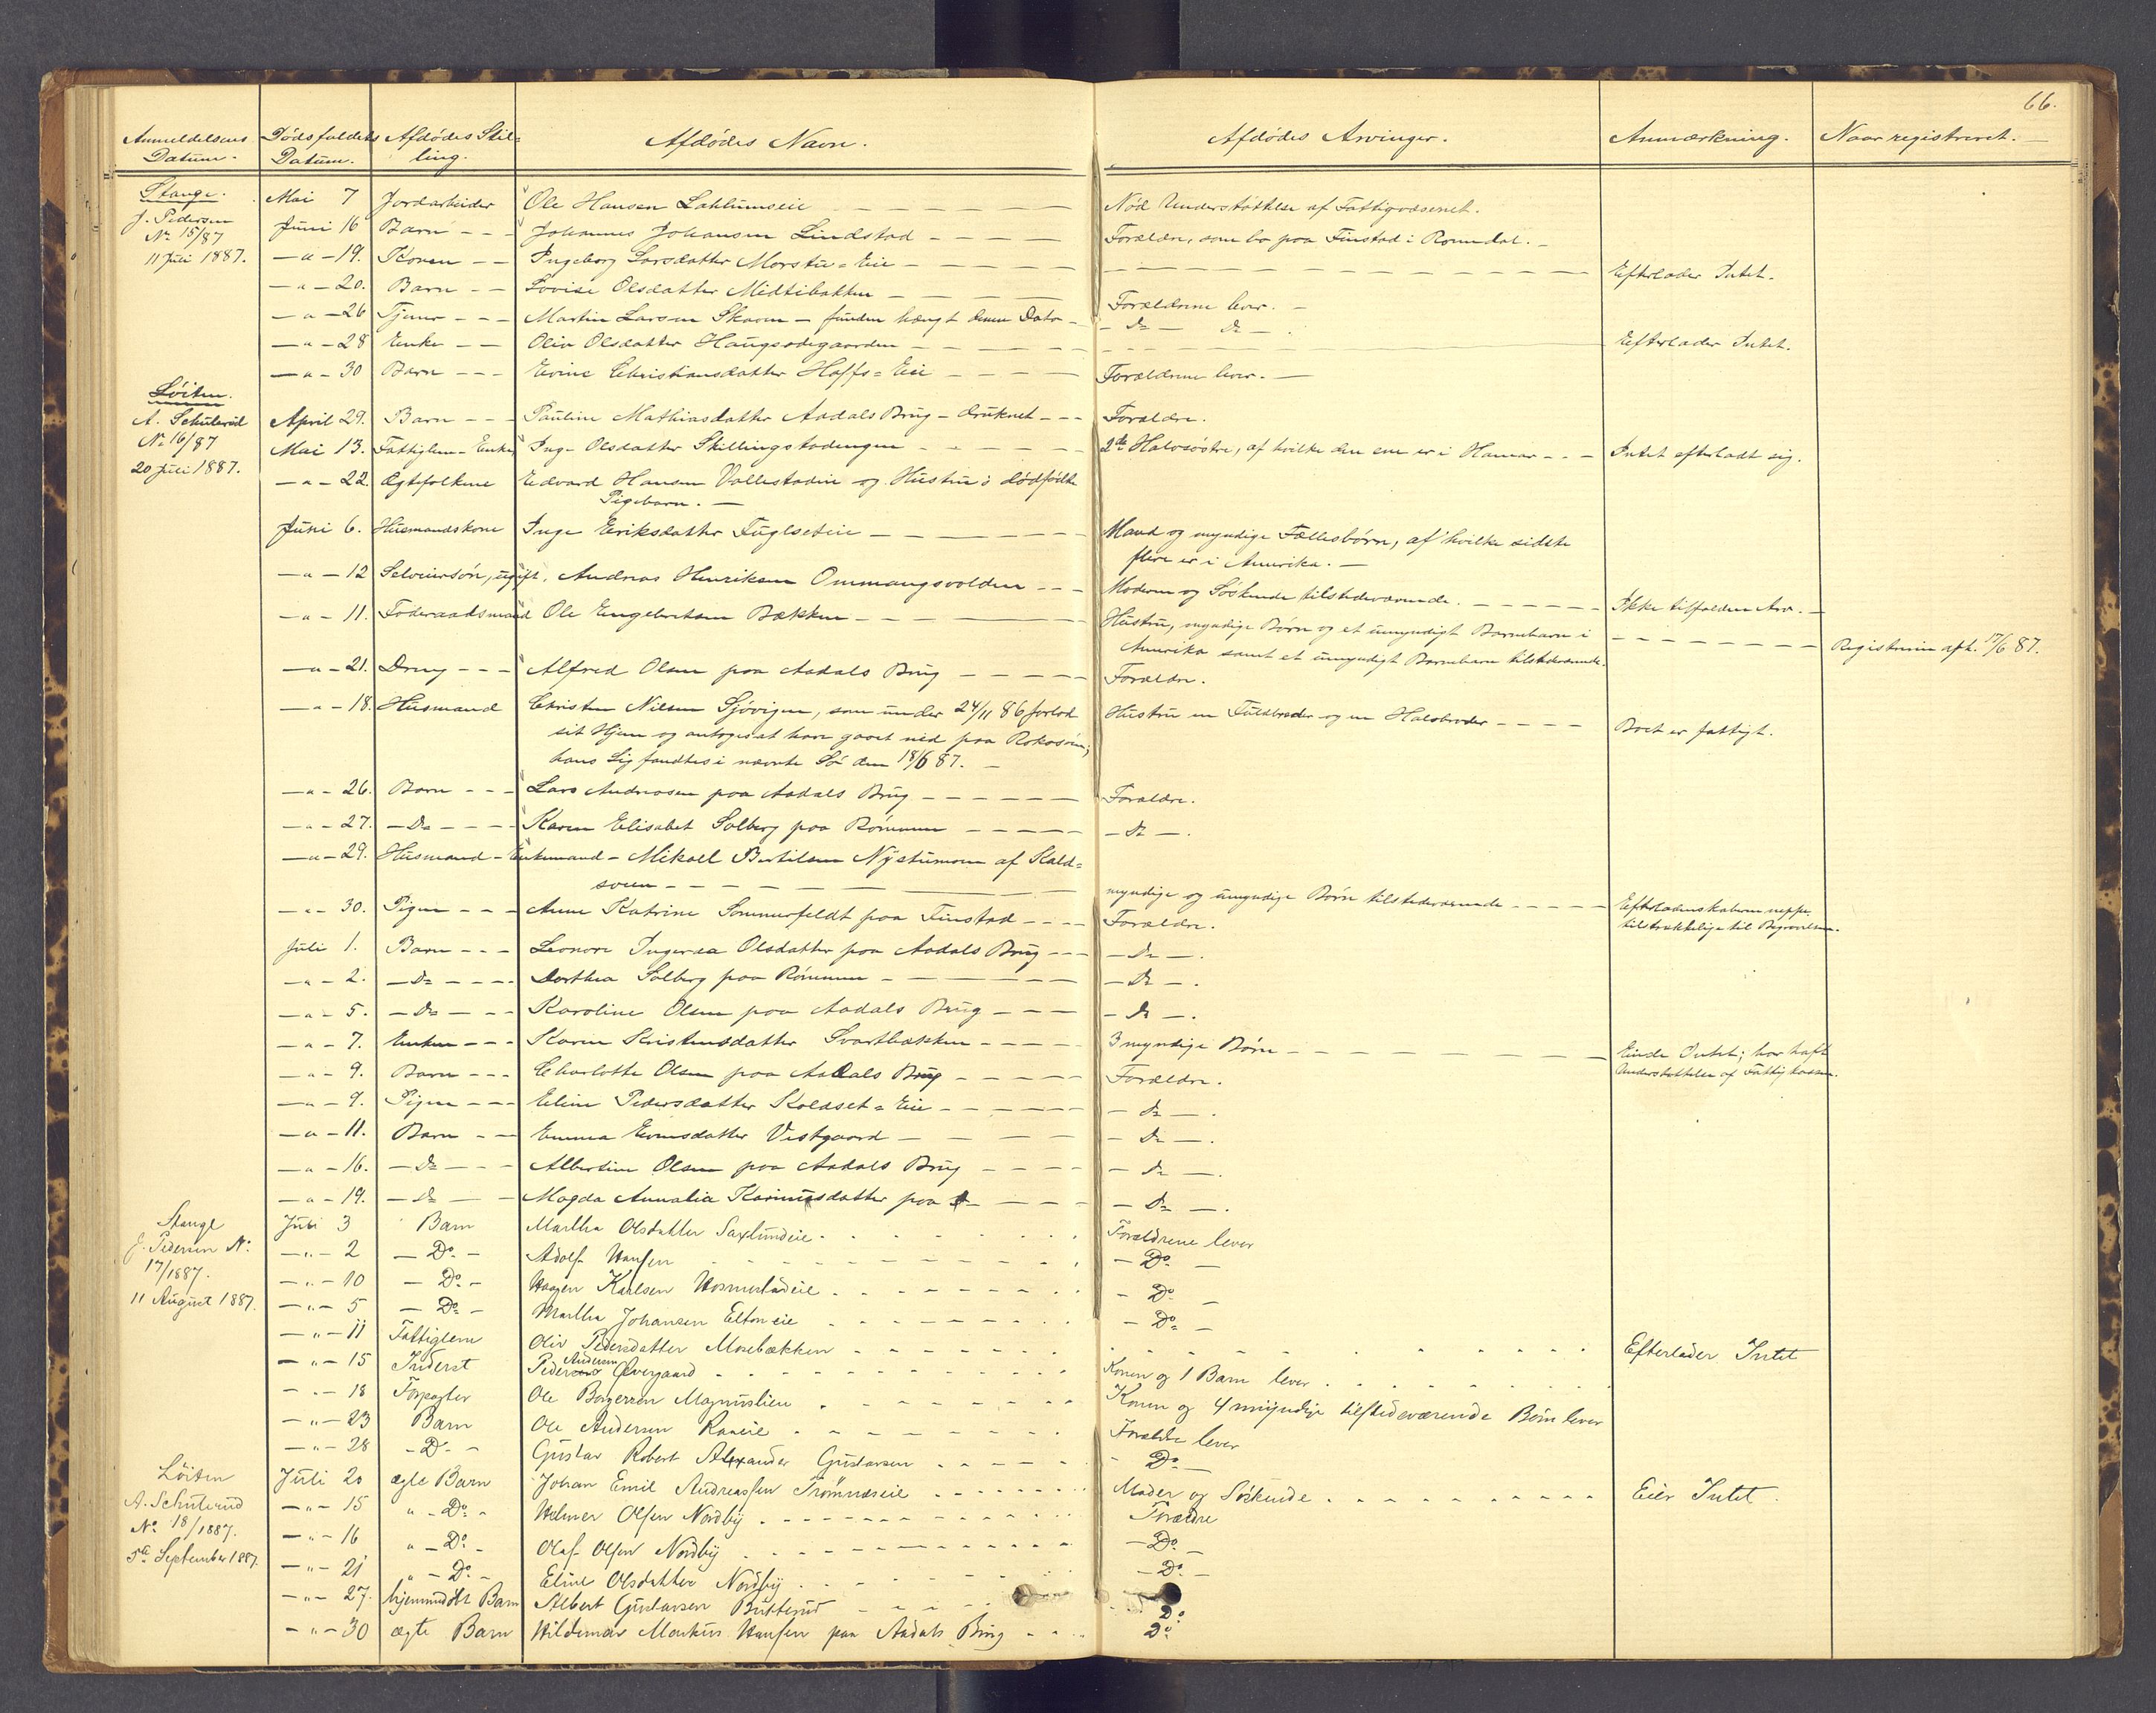 66.
Anmeldelsens Datum. Dødsfaldets Datum. Afdødes Stilling. Afdødes Navn. Afdødes Arvinger. Anmærkning. Naar registreret.
Stange. Mai 7 Jordarbeider Ole Hansen Lahlumseie Nød Understøttelse af Fattigvæsenet.
J. Pedersen Juni 16 Barn Johannes Johansen Lindstad Forældre, som bo paa Finstad i Romedal.
No 15/87
11 Juli 1887. 19. Konen Ingeborg Larsdatter Morstu-Eie Efterlader Intet.
20. Barn Lovise Olsdatter Midtibakken Forældrene lever.
26 Tjener Martin Larsen Skaven - funden hængt denne Dato Do Do
28 Enke Oliv Olsdatter Haugsødegaarden Efterlader Intet.
30 Barn Evine Christiansdatter Hoffs-Eie Forældrene lever.
Løiten.
A. Schulerud April 29. Barn Pauline Mathiasdatter Aadals Brug - druknet Forældre.
No 16/87 Mai 13. Fattiglem-Enke Ing. Olsdatter Skillingstadengen 2de Halvsøstre, af hvilke den ene er i Hamar Intet efterladt sig.
20 Juli 1887. 22. Ægtfolkene Edvard Hansen Vollestadeie og Hustru's dødfødte
Pigebarn.
Juni 6. Husmandskone Inge Eriksdatter Fuglseteie Mand og myndige Fællesbørn, af hvilke sidste
flere er i Amerika.
12 Selveiersøn, ugift, Andreas Henriksen Ommangsvolden Moderen og Søskende tilstedeværende. Ikke tilfalden Arv.
11. Føderaadsmand Ole Engebretsen Bækken Hustru, myndige Børn og et umyndigt Barnebarn i Registrering afh. 17/6 87.
Amerika samt et umyndigt Barnebarn tilstedeværende.
21. Dreng Alfred Olsen paa Aadals Brug Forældre.
18. Husmand Christen Nilsen Sjøvigen, som under 24/11 86 forlod Hustru en Fuldbroder og en Halvbroder Boet er fattigt.
sit Hjem og antoges at have gaaet ned paa Rokosøen;
hans Lig fandtes i nævnte Sø den 18/6 87.
26. Barn Lars Andreasen paa Aadals Brug Forældre.
27. Do Karen Elisabet Solberg paa Rømmen Do
29. Husmand - Enkemand - Mikael Bertilsen Nystumoen af Kald-
sveen myndige og umyndige Børn tilstedeværende Efterladenskaberne neppe
tilstrækkelige til Begravelsen.
30. Pigen Anne Katrine Sommerfeldt paa Finstad Forældre.
Juli 1. Barn Leonore Ingeraa Olsdatter paa Aadals Brug Do
2. Do Dorthea Solberg paa Rømmen Do
5. Do Karoline Olsen paa Aadals Brug Do
7. Enken Karen Kristensdatter Svartbækken 3 myndige Børn Eiede Intet; har haft
Understøttelse af Fattigkassen.
9. Barn Charlotte Olsen paa Aadals Brug Forældre.
9. Pigen Eline Pedersdatter Koldset-Eie Do
11. Barn Emma Evensdatter Vestgaard Do
16. Do Albertine Olsen paa Aadals Brug Do
19. Do Magda Annalia Karinusdatter paa Do Do
Stange Juli 3 Barn Martha Olsdatter Saxlundeie Forældrene lever
J. Pedersen No 2 Do Adolf Hansen Do
17/1887. 10 Do Haagen Karlsen Do
11 August 1887. 5 Do Martha Johansen Eltoneie Do
11 Fattiglem Oliv Pedersdatter Mosebækken Efterlader Intet
15 Inderst Peder Andersen Øvergaard Konen og 1 Barn lever
18 Forpagter Ole Børgersen Magnuslien Konen og 4 myndige tilstedeværende Børn lever
23 Barn Ole Andersen Raneie Forældre lever
28 Do Gustav Robert Alexander Gustavsen Do
Løiten Juli 20 ægte Barn Johan Emil Andreassen Trømnæseie Moder og Søskende Eier Intet.
A. Schulerud 15 " Do Helmer Olsen Nordby Forældre
No 18/1887. 16 " Do Olaf Olsen Nordby Do
5te September 1887. 21 " Do Eline Olsdatter Nordby Do
27. hjemmedøbt Barn Albert Gustavsen Butterud Do
30 ægte Barn Hildemar Markus Hansen paa Aadals Brug Do